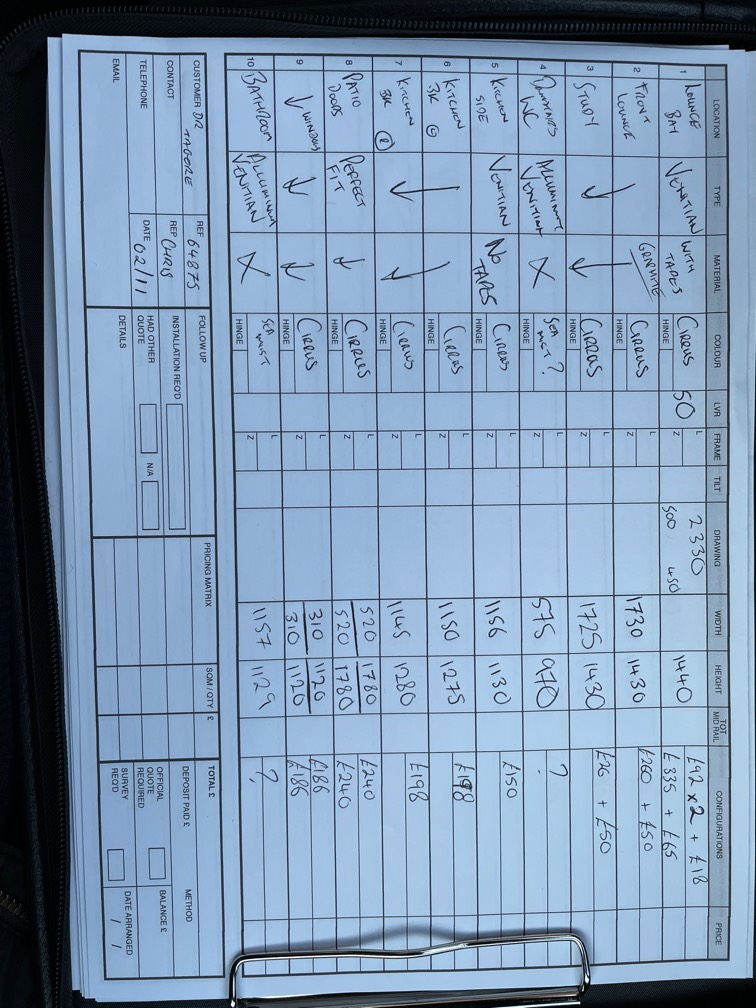 LOCATION TYPE MATERIAL COLOUR LVR FRAME TILT DRAWING WIDTH HEIGHT TOT MID RAIL CONFIGURATIONS PRICE
1 LOUNGE BAY VENETIAN WITH TAPES CIRRUS HINGE 50 L Z 2330 500 450 1440 £92 x 2 + £18 £335 + £65
2 FRONT LOUNGE ↓ GRAPHITE CIRRUS HINGE L Z 1730 1430 £260 + £50
3 STUDY ↓ CIRRUS HINGE L Z 1725 1430 £26 + £50
4 WC ALLUMINIUM VENITIAN X SEA MIST ? HINGE L Z 575 970 ?
5 KITCHEN SIDE VENITIAN NO TAPES CIRRUS HINGE L Z 1156 1130 £150
6 KITCHEN CIRRUS HINGE L Z 1150 1275 £198
7 KITCHEN ↓ ↓ CIRRUS HINGE L Z 1145 1280 £198
8 PATIO DOORS PERFECT FIT ↓ CIRRUS HINGE L Z 520 1780 £240
520 1780 £240
9 ↓ WINDOWS ↓ ↓ CIRRUS HINGE L Z 310 1120 £186
310 1120 £186
10 BATHROOM ALLUMINIUM VENITIAN X SEA MIST HINGE L Z 1157 1129 ?
CUSTOMER DR TAGORE REF 64875
CONTACT REP CHRIS
TELEPHONE DATE 02/11
EMAIL
FOLLOW UP
INSTALLATION REQ'D
HAD OTHER QUOTE N/A
DETAILS
PRICING MATRIX SQM / QTY £
TOTAL £
DEPOSIT PAID £ METHOD
OFFICIAL QUOTE REQUIRED BALANCE £
SURVEY REQ'D DATE ARRANGED / /